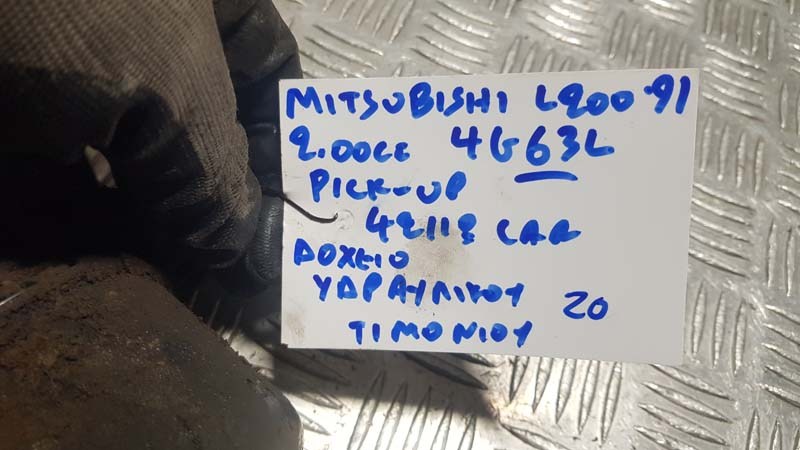 MITSUBISHI L200·91
2.00cc 4G63L
PICK-UP
42112 CAR
ΔΟΧΕΙΟ
ΥΔΡΑΥΛΙΚΟΥ 20
ΤΙΜΟΝΙΟΥ